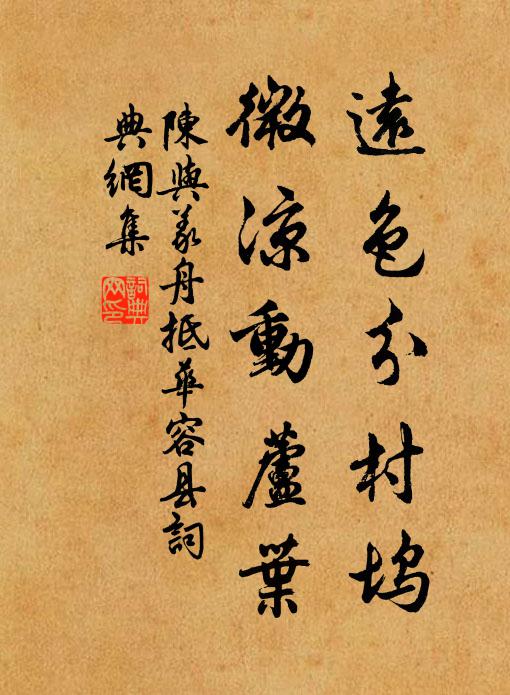 遠色分村塢
微涼動蘆葉
陳與義舟抵華容县詞
典網集
詞典
网印